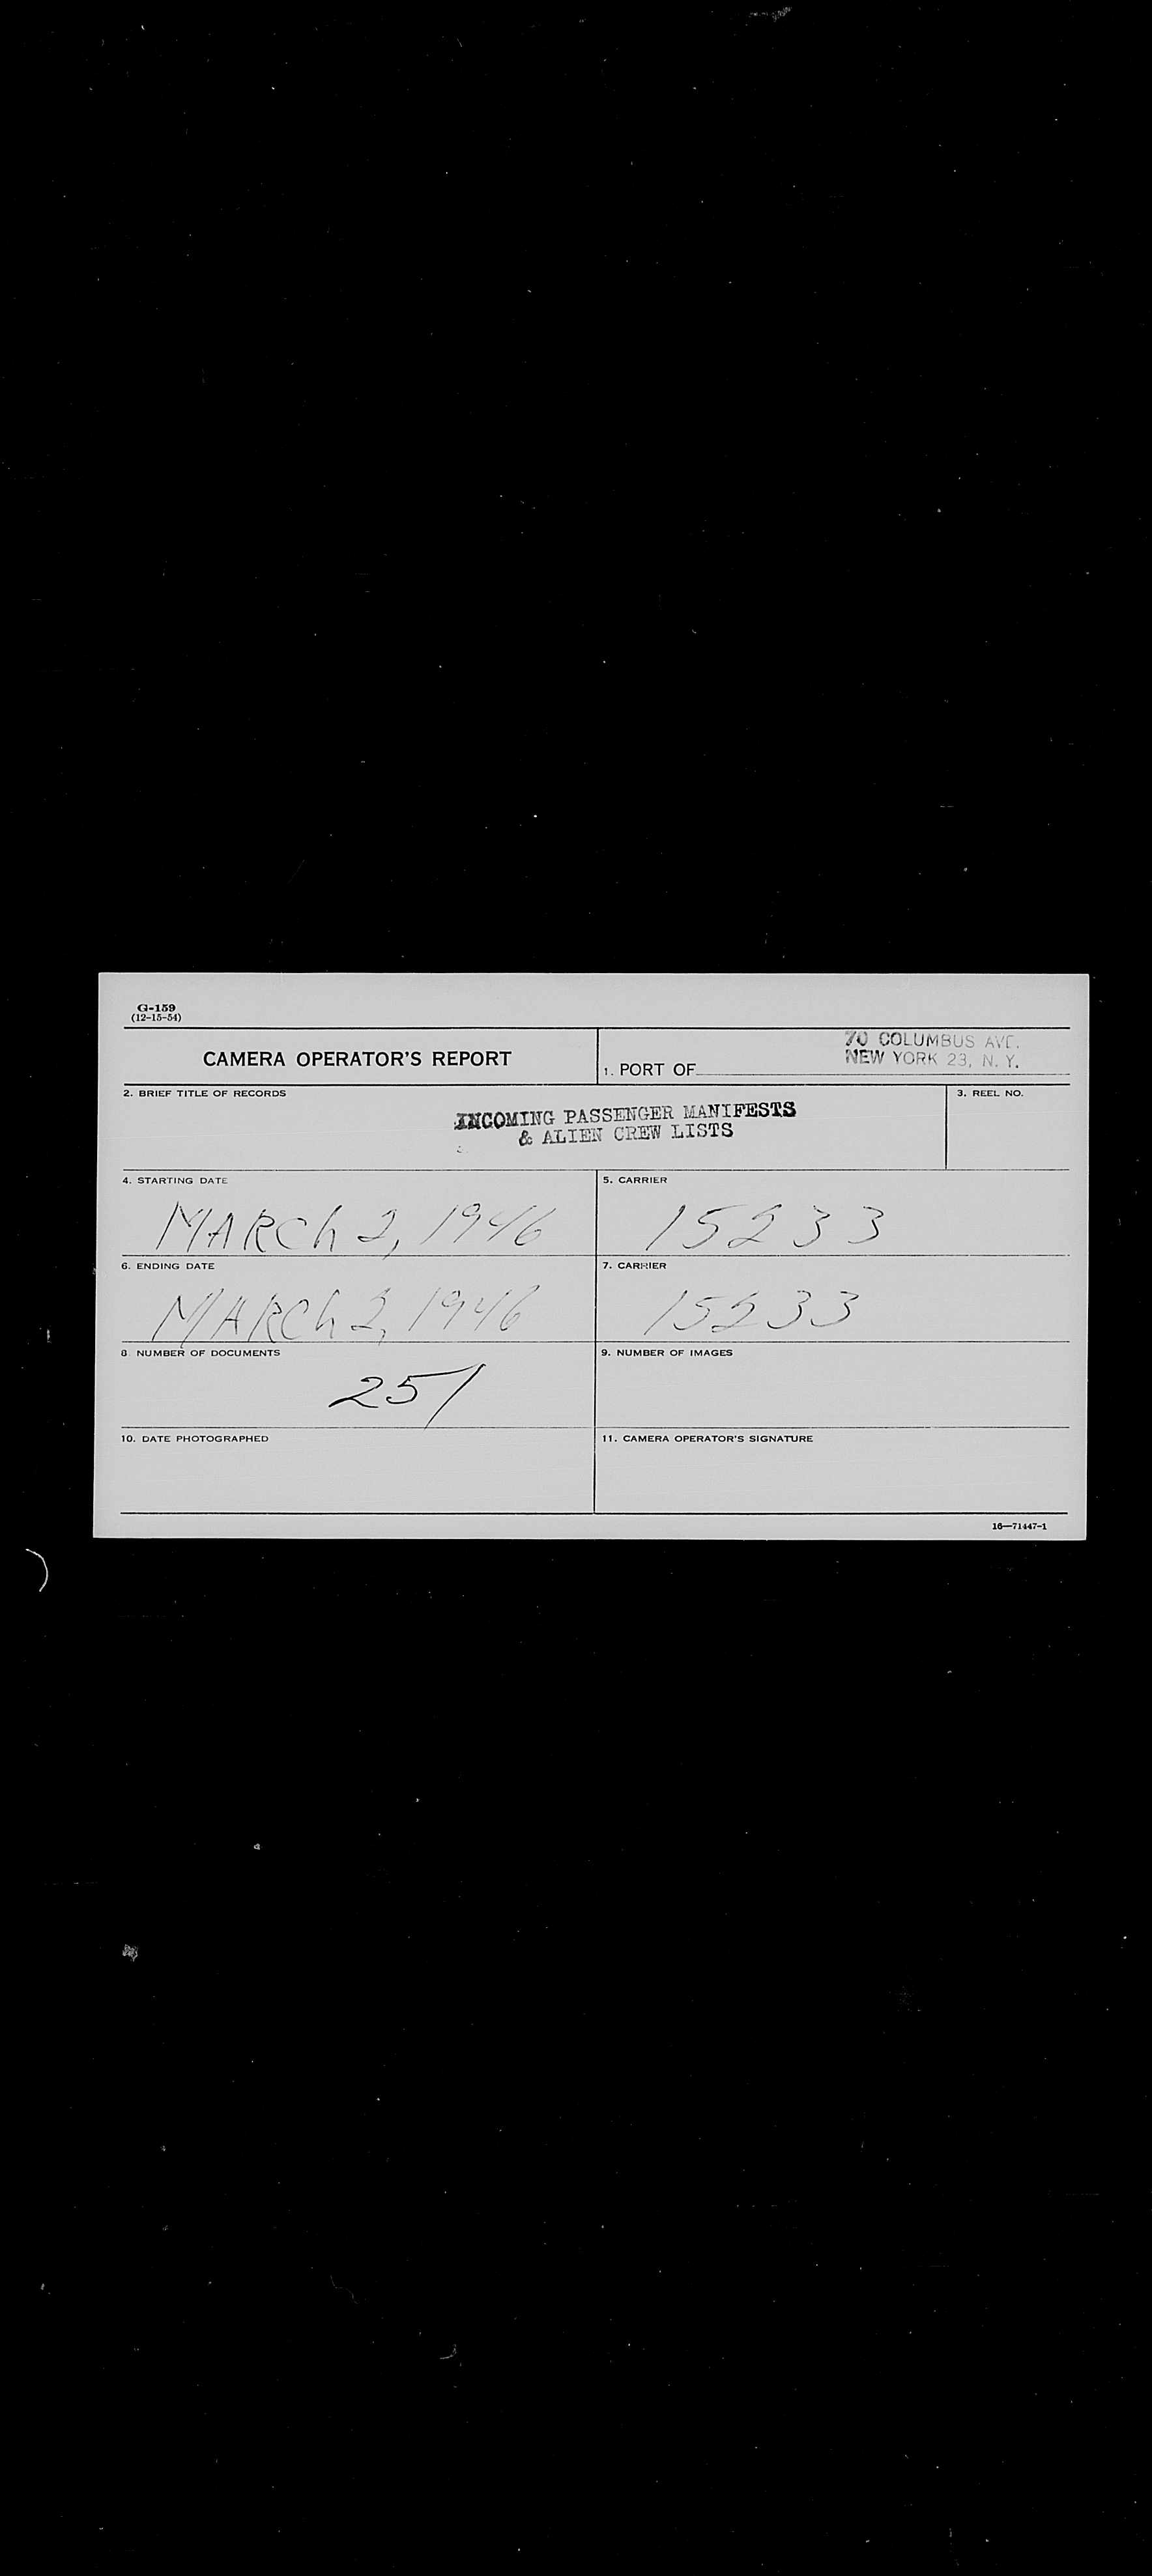 G-159
(12-15-54)
CAMERA OPERATOR'S REPORT
1. PORT OF
70 COLUMBUS AVE.
NEW YORK 23, N. Y.
2. BRIEF TITLE OF RECORDS
INCOMING PASSENGER MANIFESTS
& ALIEN CREW LISTS
3. REEL NO.
4. STARTING DATE
MARCh 2, 1946
5. CARRIER
15233
6. ENDING DATE
MARCh 2, 1946
7. CARRIER
15233
8. NUMBER OF DOCUMENTS
251
9. NUMBER OF IMAGES
10. DATE PHOTOGRAPHED
11. CAMERA OPERATOR'S SIGNATURE
16—71447-1